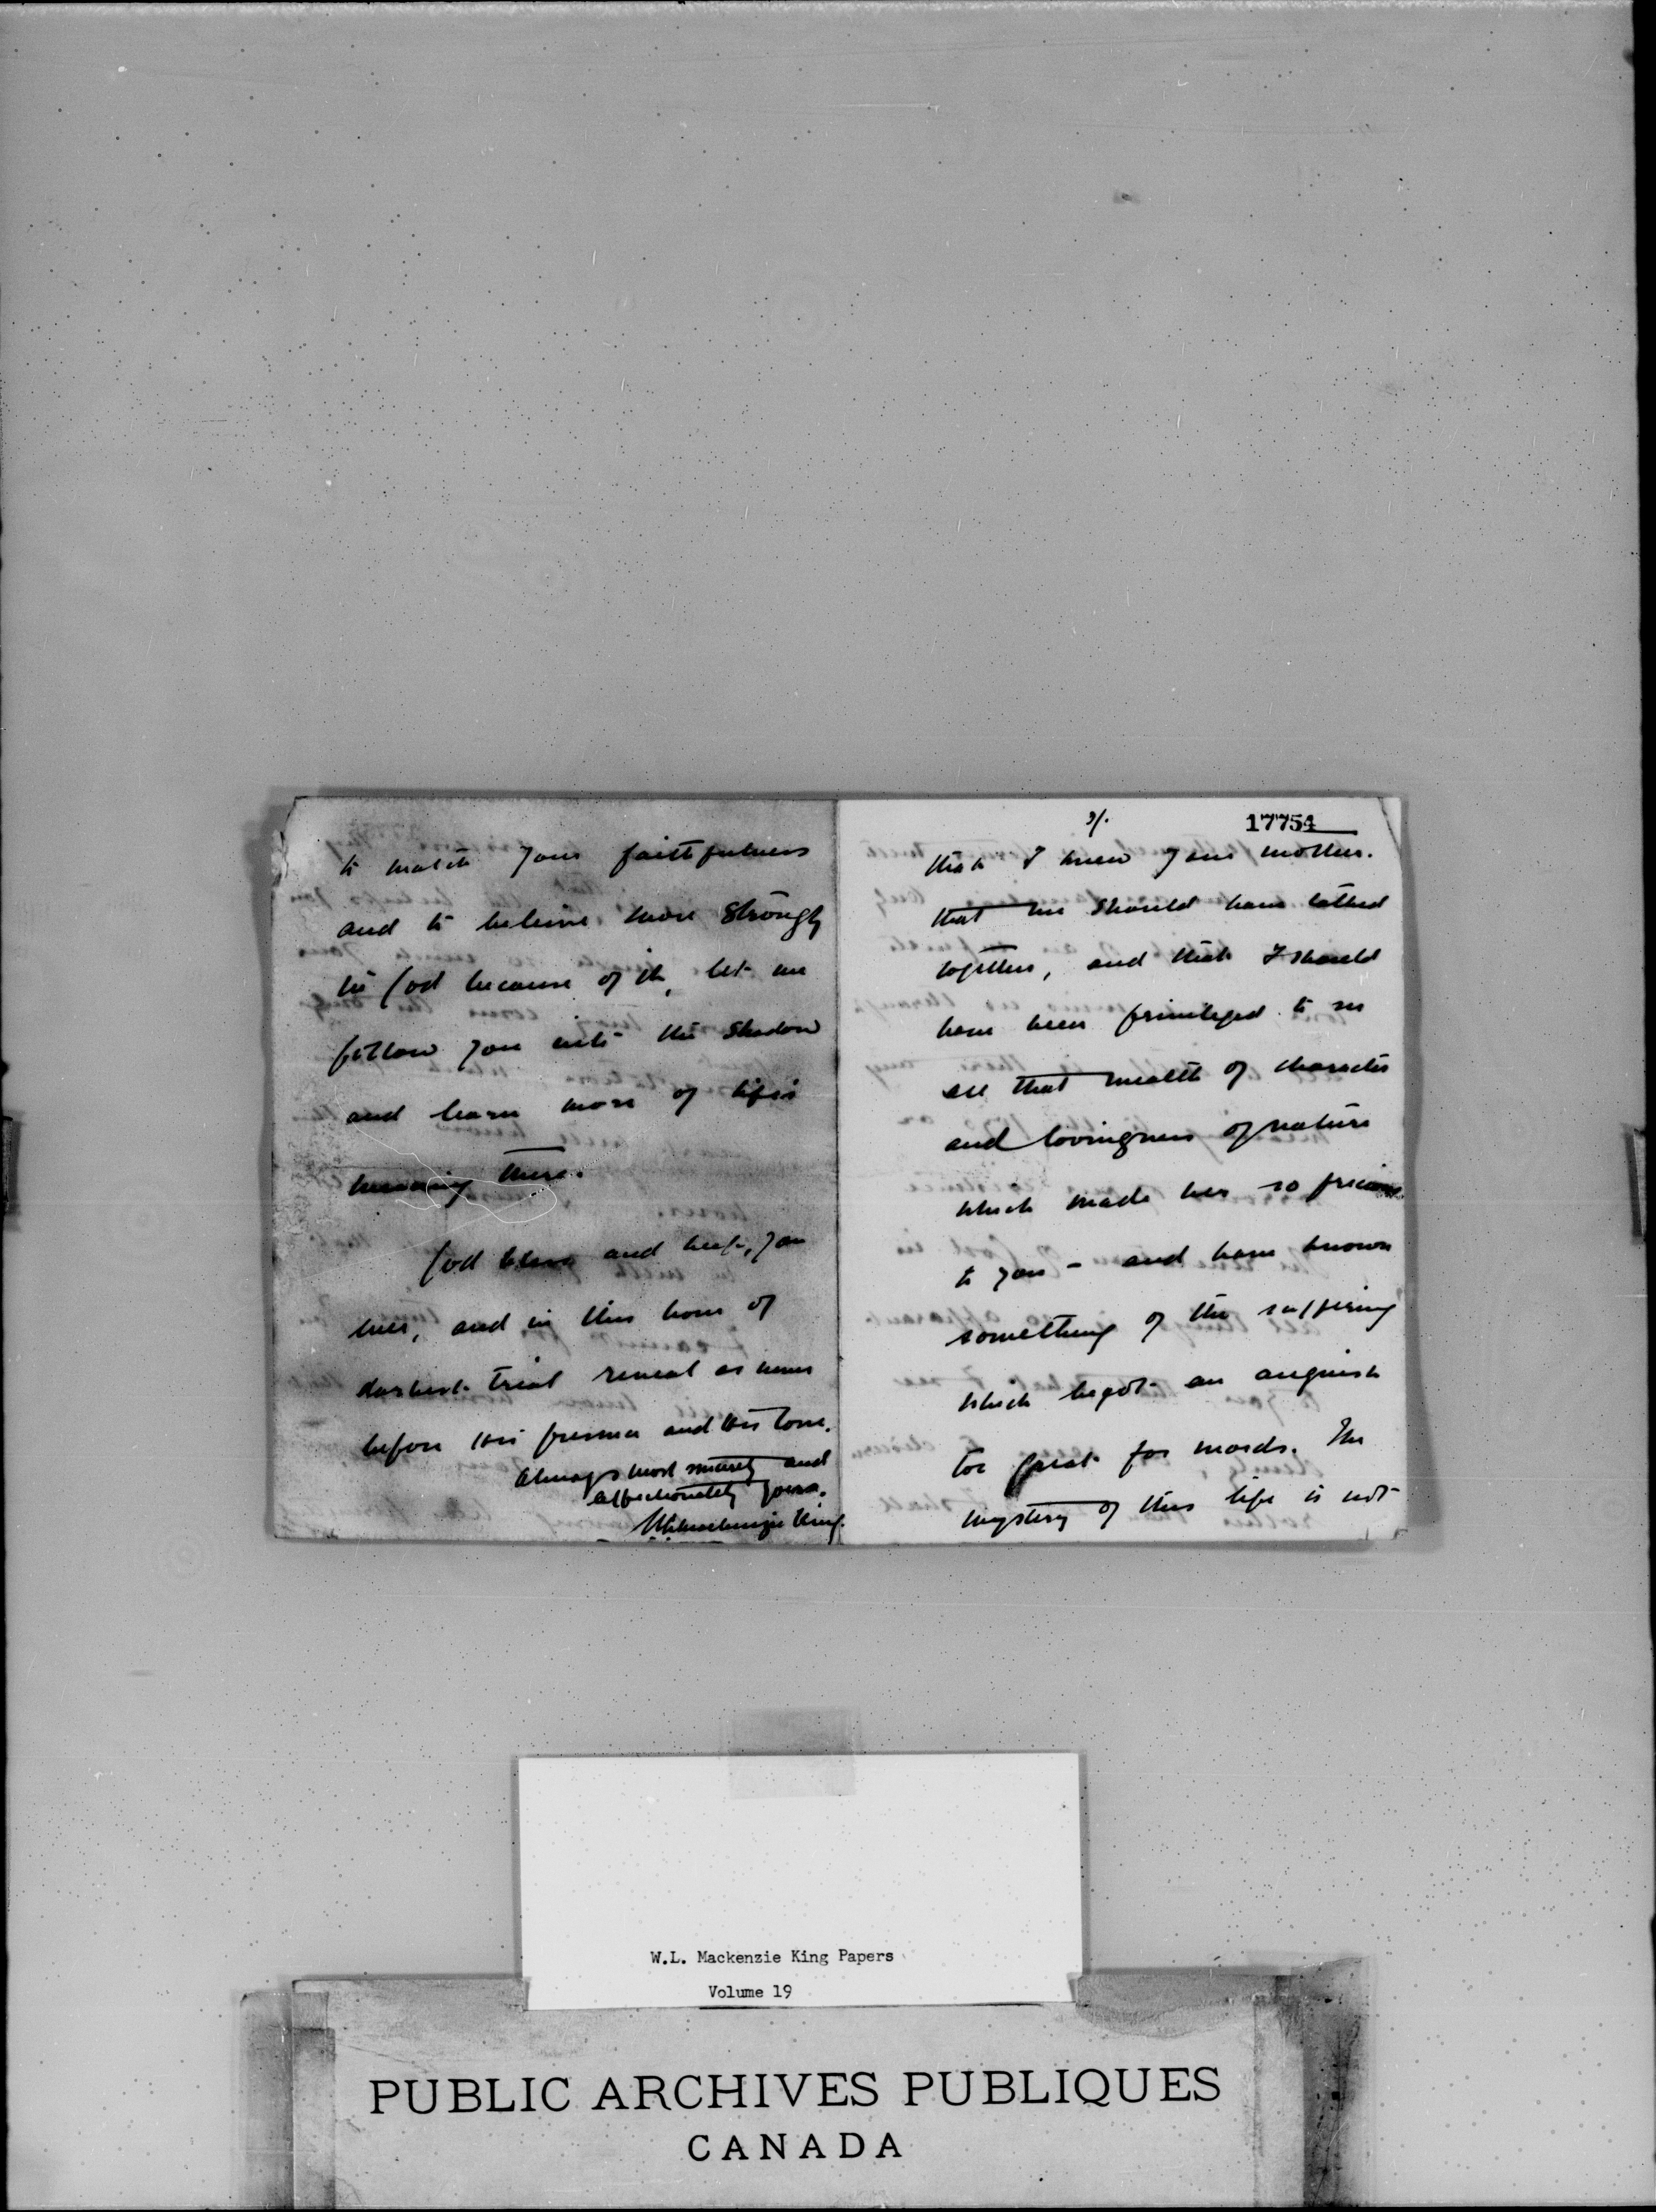 to match your faithfulness
and to believe more strongly
in God because of it, let me
follow you into the shadow
and learn more of life's
meaning there.
God bless and keep, you
ever, and in this hour of
darkest trial reveal as never
before His presence and His love.
Always most sincerely and
affectionately yours.
WLMackenzie King.
3/.
17754
that I knew your mother.
that we should have talked
together, and that I should
have been privileged to see
all that wealth of character
and lovingness of nature
which made her so precious
to you - and have known
something of the suffering
which begot an anguish
too great for words. The
mystery of this life is not
W.L. Mackenzie King Papers
Volume 19
PUBLIC ARCHIVES PUBLIQUES
CANADA